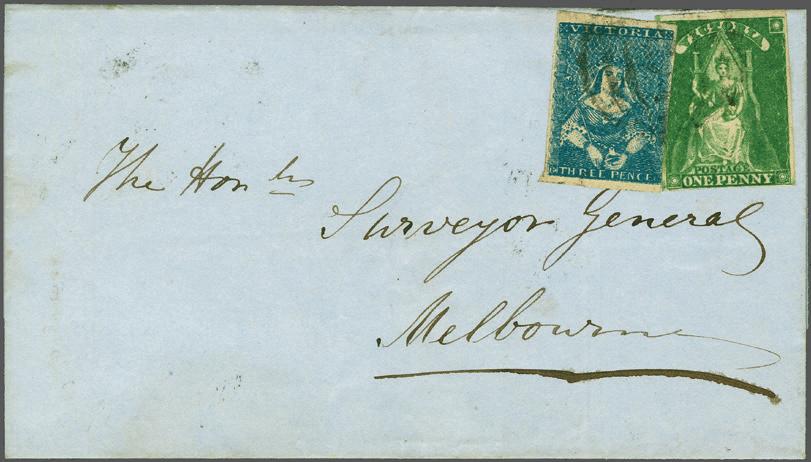 VICTORIA
THREE PENCE
VICTORIA
POSTAGE
ONE PENNY
The Honble
Surveyor General
Melbourne